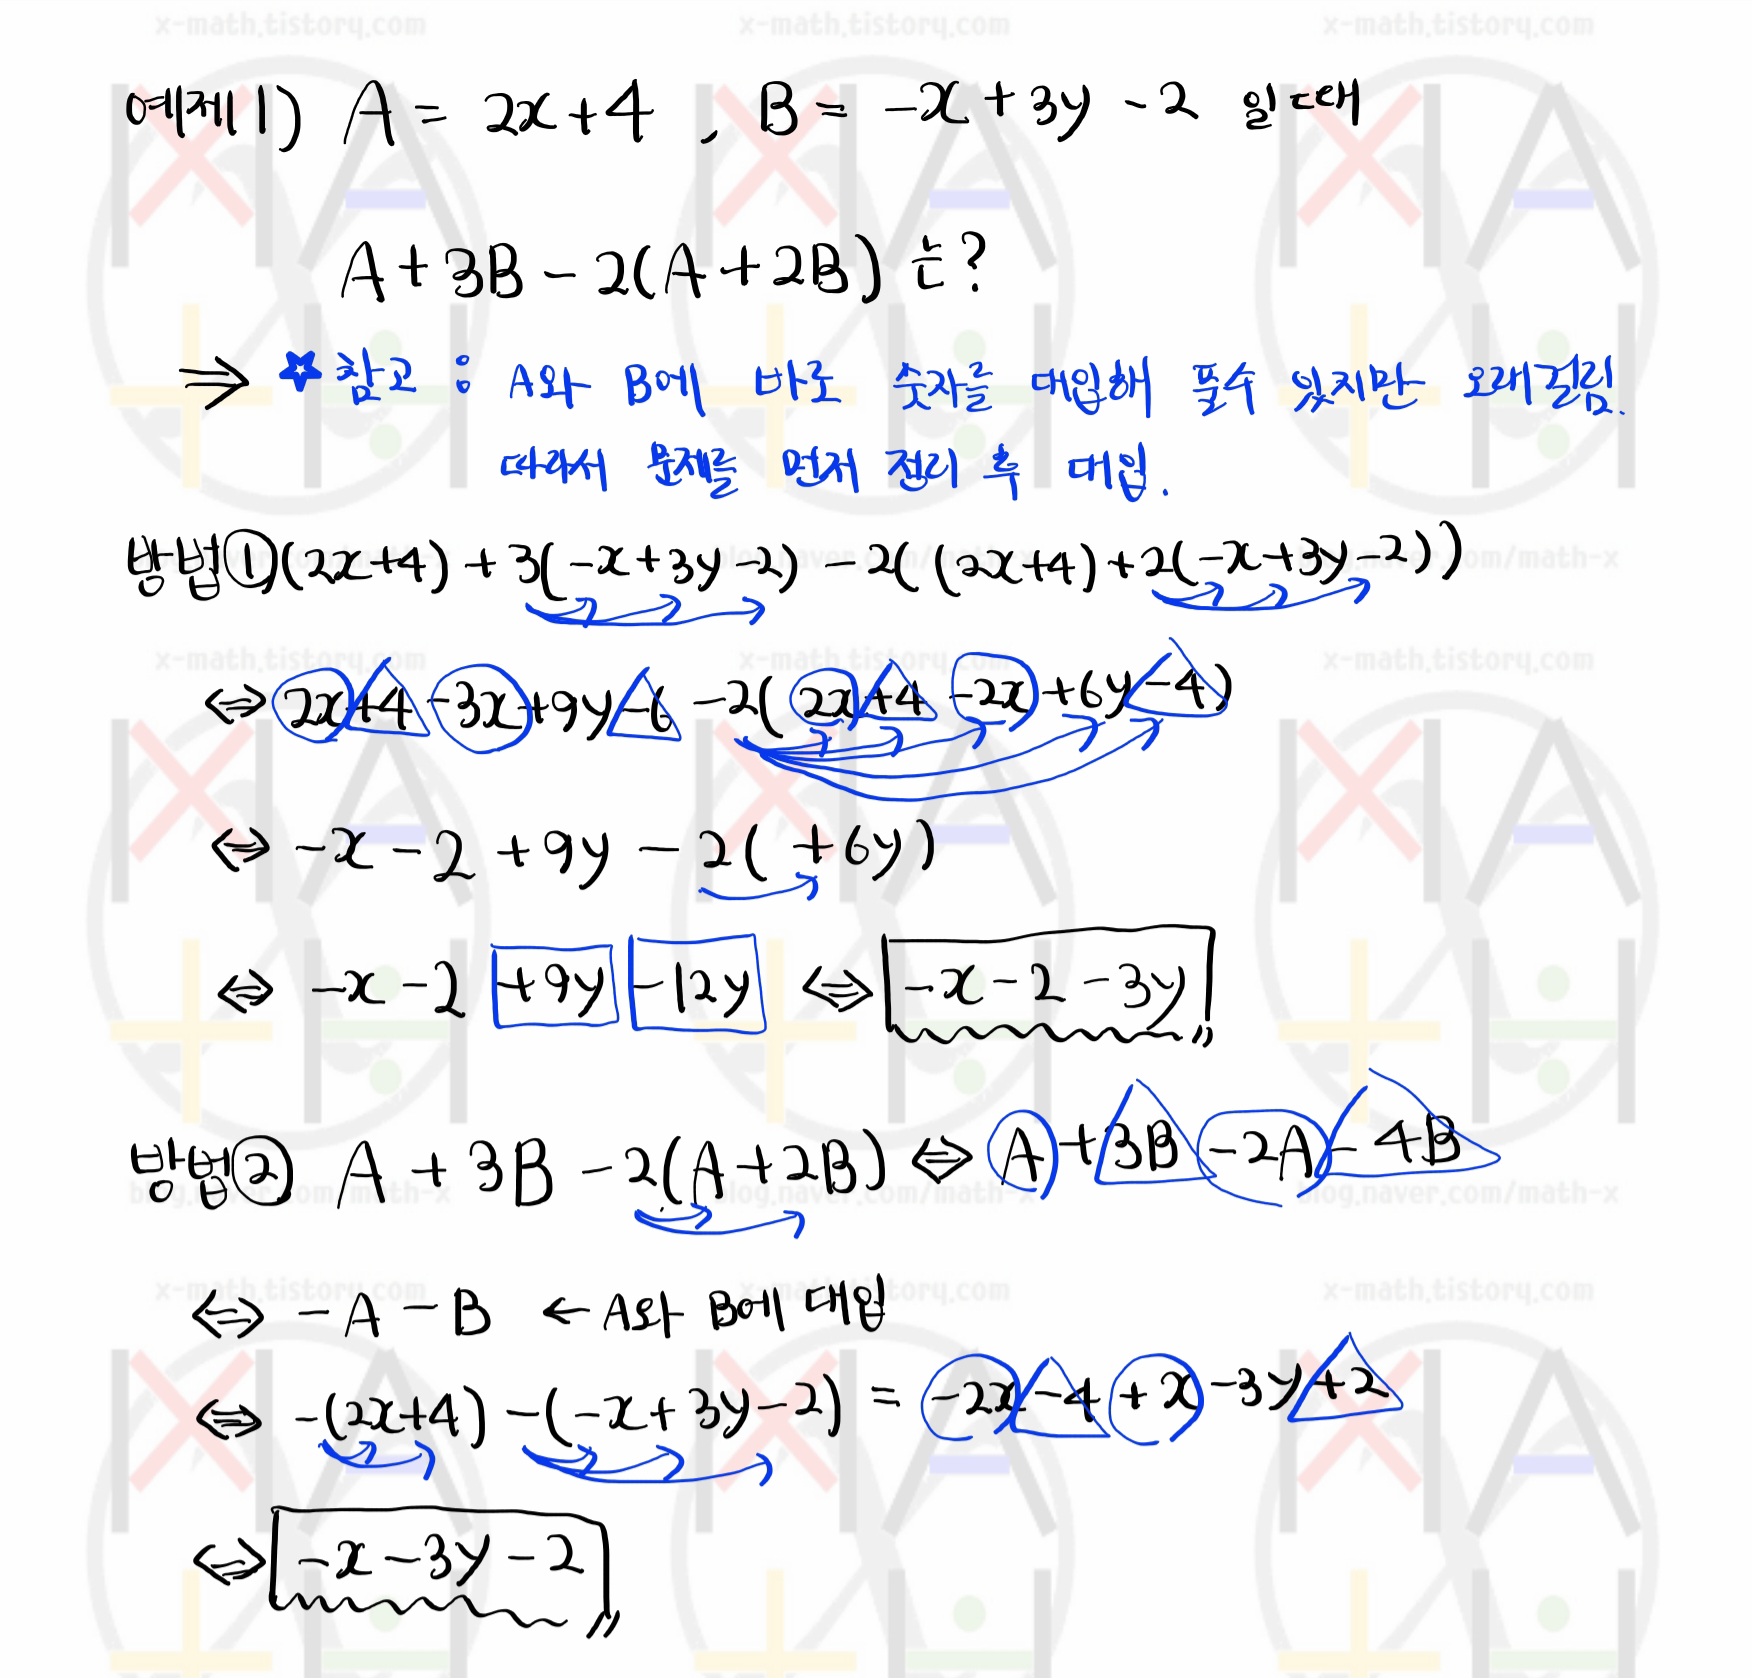 x-math.tistory.com x-math.tistory.com x-math.tistory.com
예제1) A = 2x+4 , B = -x+3y-2 일때
A+3B-2(A+2B)는?
⇒ ☆ 참고 : A와 B에 바로 숫자를 대입해 풀수 있지만 오래걸림.
따라서 문제를 먼저 정리 후 대입.
방법① (2x+4)+3(-x+3y-2)-2((2x+4)+2(-x+3y-2))
blog.naver.com/math-x blog.naver.com/math-x blog.naver.com/math-x
x-math.tistory.com x-math.tistory.com x-math.tistory.com
⇔ 2x+4-3x+9y-6-2(2x+4-2x+6y-4)
⇔ -x-2+9y-2( +6y)
⇔ -x-2+9y-12y ⇔ -x-2-3y
방법② A+3B-2(A+2B) ⇔ A+3B-2A-4B
blog.naver.com/math-x blog.naver.com/math-x blog.naver.com/math-x
x-math.tistory.com x-math.tistory.com x-math.tistory.com
⇔ -A-B ← A와 B에 대입
⇔ -(2x+4)-(-x+3y-2) = -2x-4+x-3y+2
⇔ -x-3y-2